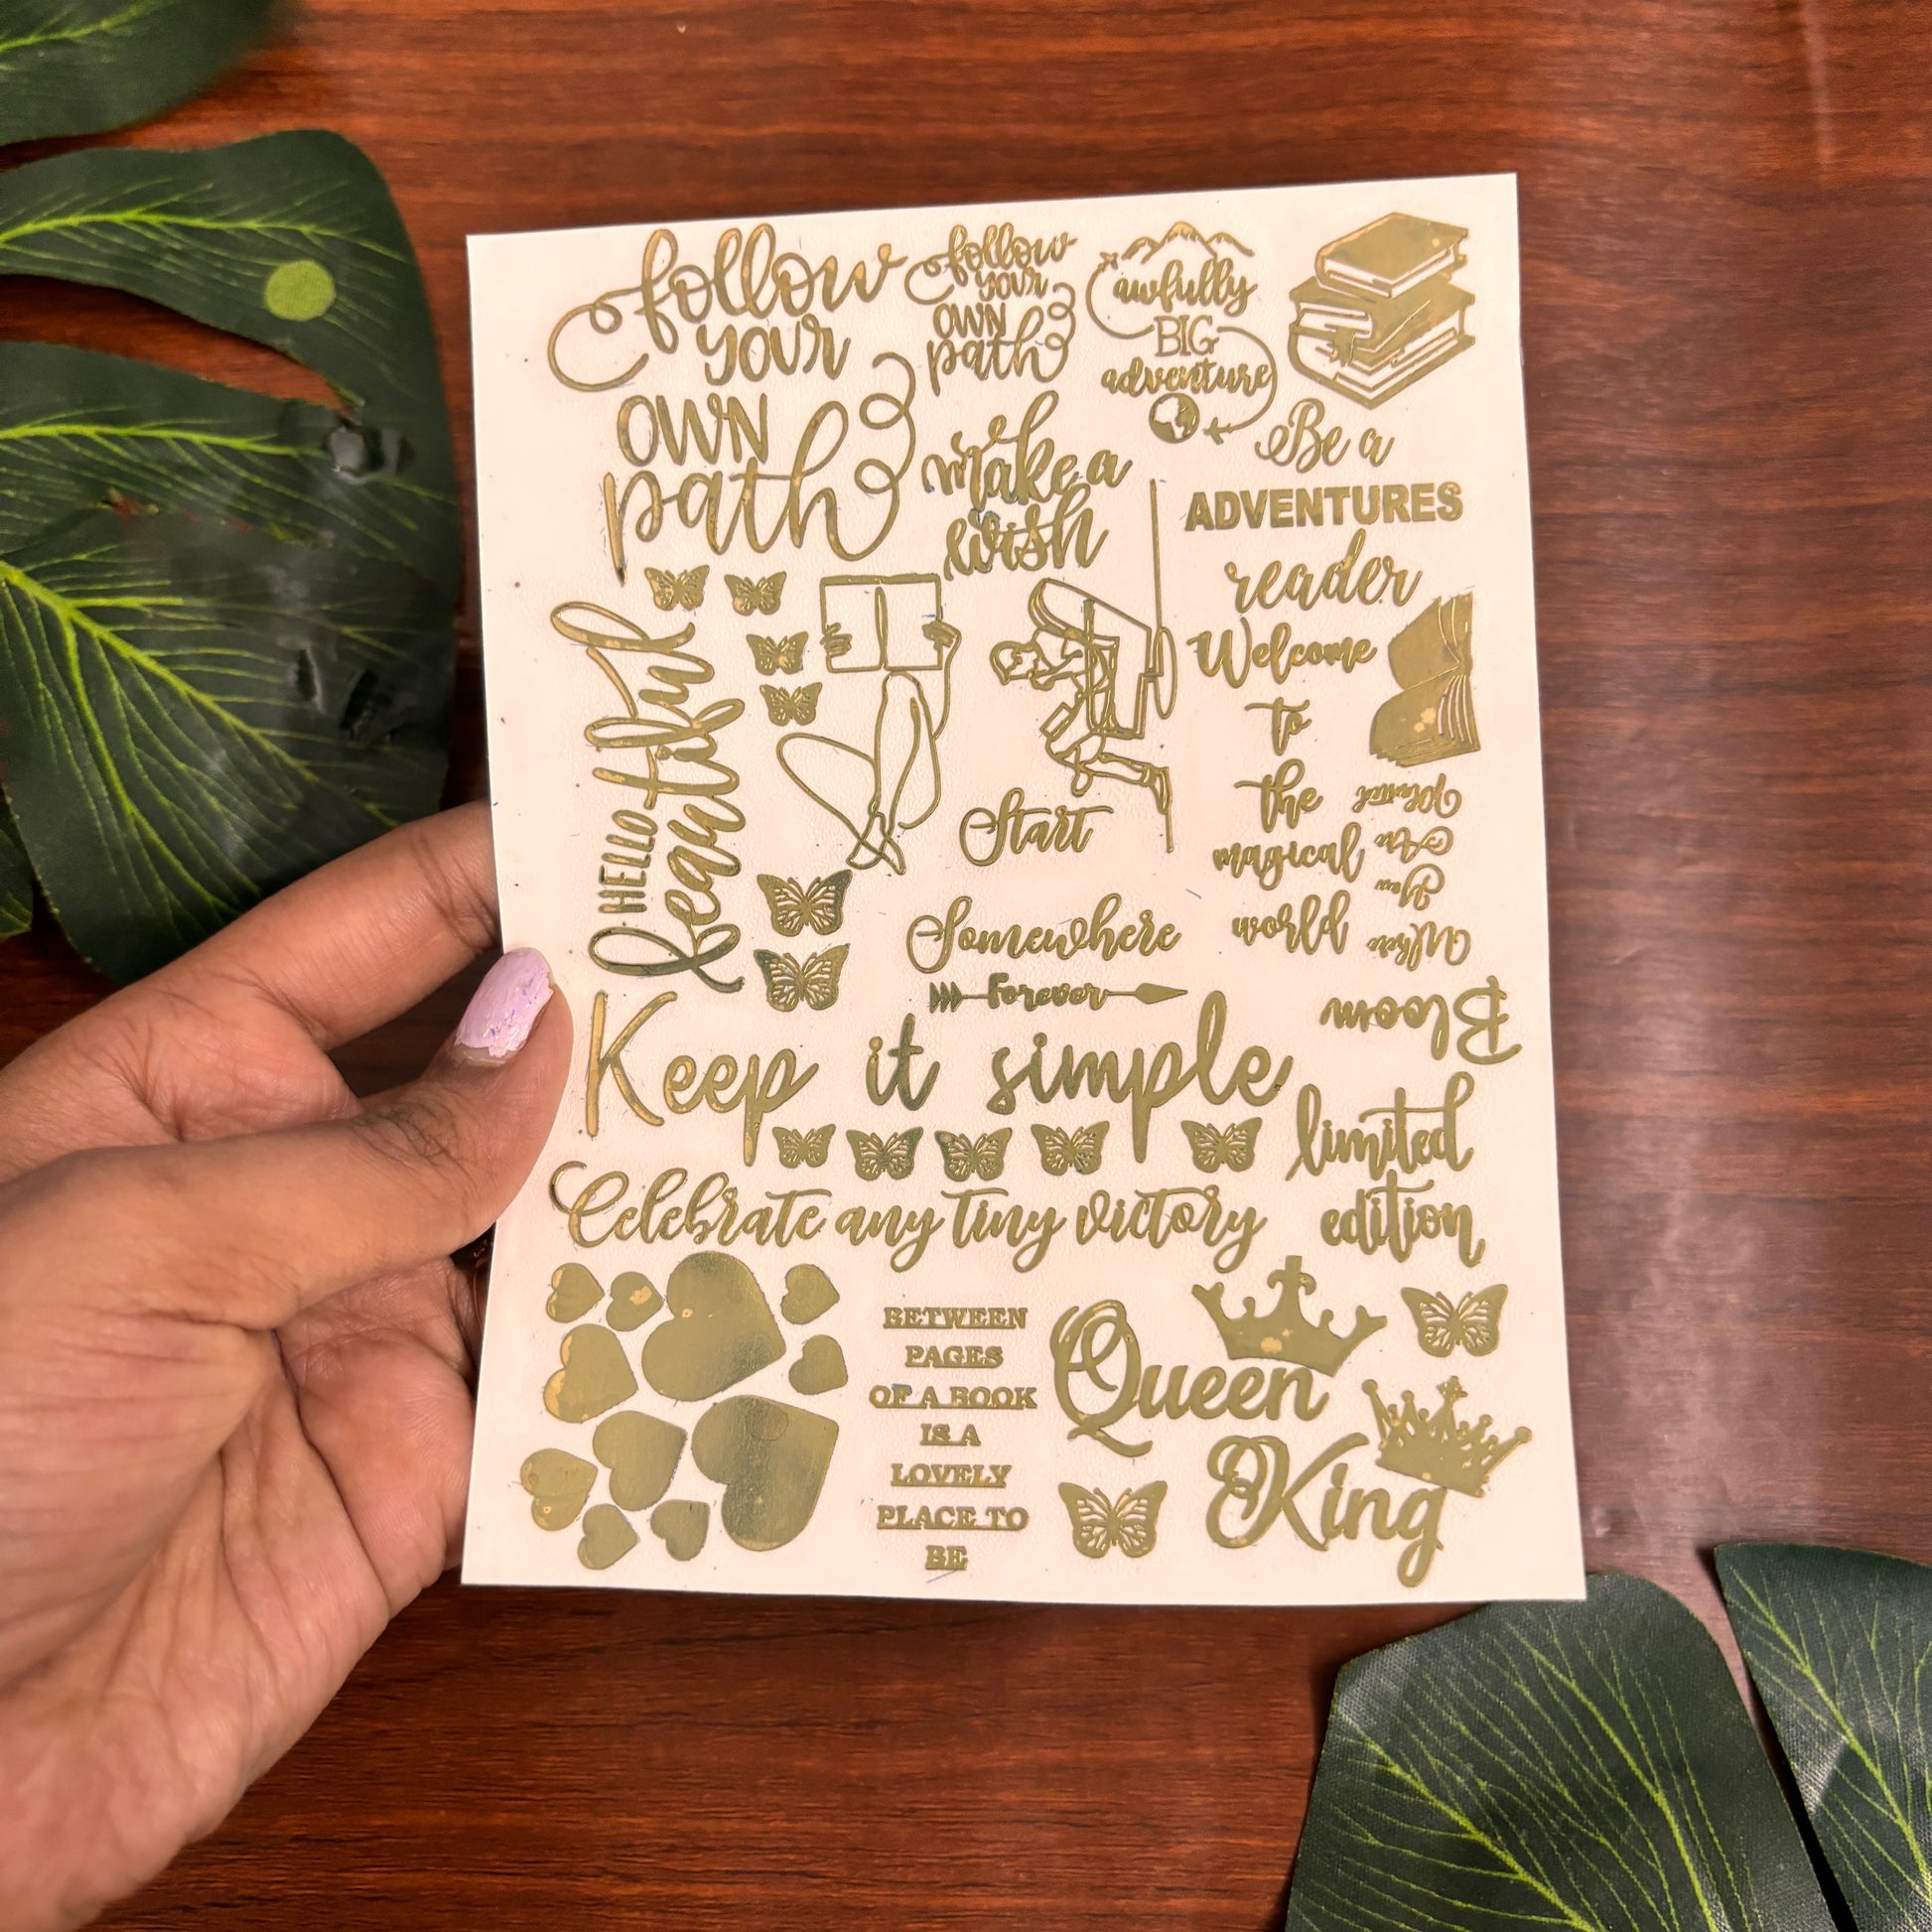 follow
your
OWN
path
follow
your
OWN
path
awfully
BIG
adventure
Be a
ADVENTURES
reader
make a
wish
HELLO
beautiful
Start
Welcome
to
the
magical
world
Where
You
Are
Planted
Bloom
Somewhere
Forever
Keep it simple
limited
edition
Celebrate any tiny victory
BETWEEN
PAGES
OF A BOOK
IS A
LOVELY
PLACE TO
BE
Queen
King